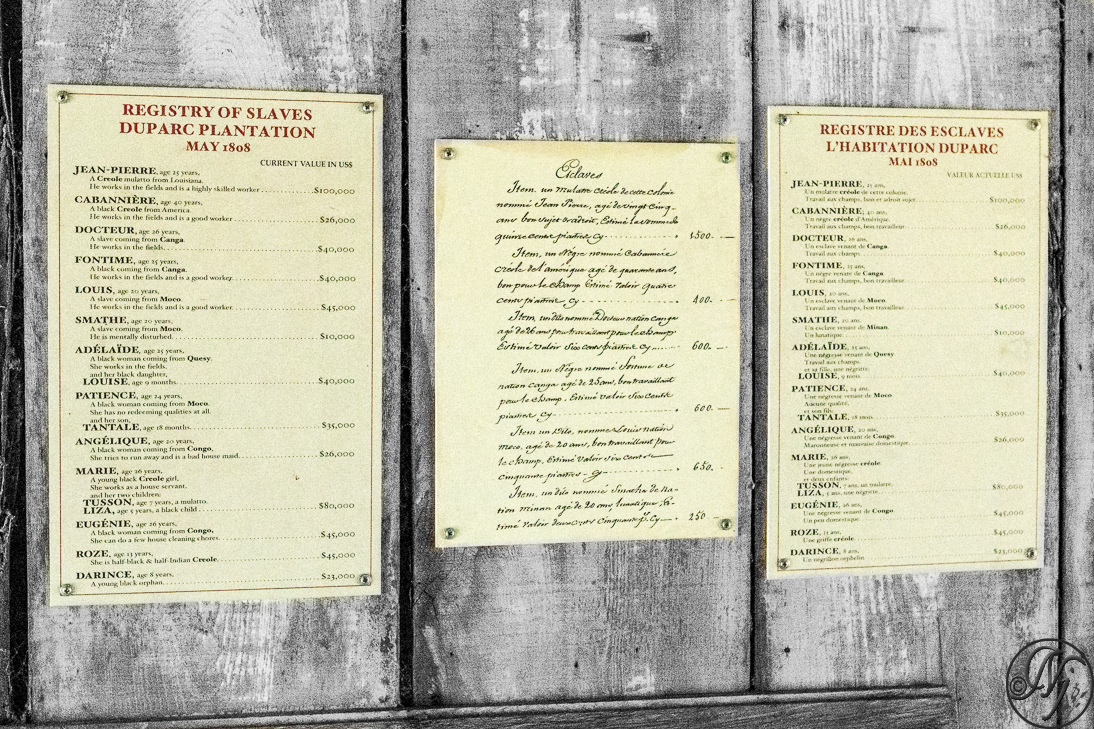 REGISTRY OF SLAVES
DUPARC PLANTATION
MAY 1808
CURRENT VALUE IN US$
JEAN-PIERRE, age 25 years,
A Creole mulatto from Louisiana.
He works in the fields and is a highly skilled worker ..................$100,000
CABANNIÈRE, age 40 years,
A black Creole from America.
He works in the fields and is a good worker ..................$26,000
DOCTEUR, age 26 years,
A slave coming from Canga.
He works in the fields. ..................$40,000
FONTIME, age 25 years,
A black coming from Canga.
He works in the fields and is a good worker. ..................$40,000
LOUIS, age 20 years,
A slave coming from Moco.
He works in the fields and is a good worker ..................$45,000
SMATHE, age 20 years,
A slave coming from Moco.
He is mentally disturbed. ..................$10,000
ADÉLAÏDE, age 25 years,
A black woman coming from Quesy.
She works in the fields,
and her black daughter,
LOUISE, age 9 months. ..................$40,000
PATIENCE, age 24 years,
A black woman coming from Moco.
She has no redeeming qualities at all.
and her son,
TANTALE, age 18 months. ..................$35,000
ANGÉLIQUE, age 20 years,
A black woman coming from Congo,
She tries to run away and is a bad house maid. ..................$26,000
MARIE, age 26 years,
A young black Creole girl,
She works as a house servant.
and her two children:
TUSSON, age 7 years, a mulatto.
LIZA, age 5 years, a black child ..................$80,000
EUGÉNIE, age 26 years,
A black woman coming from Congo,
She can do a few house cleaning chores. ..................$45,000
ROZE, age 13 years,
She is half-black & half-Indian Creole. ..................$45,000
DARINCE, age 8 years,
A young black orphan. ..................$23,000
Esclaves
Item, un mulatre créole de cette colonie
nommé Jean Pierre, agé de vingt cinq-
ans bon sujet
quinze cents piastres Cy - - - 1500. —
Item, un Nègre nommé Cabannière
créole de l'amérique agé de quarante ans,
bon pour le champ Estimé valoir quatre
cents piastres Cy - - - 400. —
nommé Docteur nation Canga
agé de 26 ans pour le champ
Estimé valoir Six cents piastres Cy - - - 600. —
Item, un Nègre nommé Fontime de
nation Canga agé de 25 ans, bon travaillant
pour le champ, Estimé valoir Six cents
piastres Cy - - - 600. —
Item un nommé Louis nation
moco, agé de 20 ans, bon travaillant pour
le champ, Estimé valoir Six cents
cinquante piastres - Cy - - - 650. —
Item, un nommé Smathe de na-
tion minan agé de 20 ans, lunatique, Es-
timé valoir deux cents Cinquante P. Cy - - 250 —
REGISTRE DES ESCLAVES
L'HABITATION DUPARC
MAI 1808
VALEUR ACTUELLE US$
JEAN-PIERRE, 25 ans,
Un mulatre créole de cette colonie.
Travail aux champs, bon et adroit sujet ..................$100,000
CABANNIÈRE, 40 ans,
Un nègre créole d'Amérique.
Travail aux champs, bon travailleur ..................$26,000
DOCTEUR, 26 ans,
Un esclave venant de Canga.
Travail aux champs ..................$40,000
FONTIME, 25 ans,
Un nègre venant de Canga.
Travail aux champs, bon travailleur ..................$40,000
LOUIS, 20 ans,
Un esclave venant de Moco.
Travail aux champs, bon travailleur. ..................$45,000
SMATHE, 20 ans,
Un esclave venant de Minan.
Un lunatique. ..................$10,000
ADÉLAÏDE, 25 ans,
Une négresse venant de Quesy
Travail aux champs,
et sa fille, une négritte:
LOUISE, 9 mois ..................$40,000
PATIENCE, 24 ans,
Une négresse venant de Moco
Aucune qualité,
et son fils:
TANTALE, 18 mois ..................$35,000
ANGÉLIQUE, 20 ans,
Une négresse venant de Congo.
Marronneuse et mauvaise domestique ..................$26,000
MARIE, 26 ans,
Une jeune négresse créole.
Une domestique,
et deux enfants:
TUSSON, 7 ans, un mulatre.
LIZA, 5 ans, une négritte. ..................$80,000
EUGÉNIE, 26 ans,
Une négresse venant de Congo.
Un peu domestique. ..................$45,000
ROZE, 13 ans,
Une griffe créole. ..................$45,000
DARINCE, 8 ans,
Un négrillon orphelin. ..................$23,000